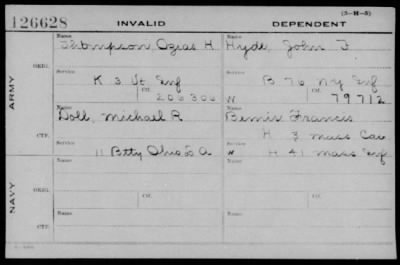 (3-H-5)
126628 INVALID DEPENDENT
Name Name
Thompson Ozias H Hyde, John F
ORIG. Service Service
K 3 Vt Inf B 76 NY Inf
Ctf. Ctf.
206306 W 79712
ARMY
Name Name
Doll, Michael R Bemis Francis
CTF. Service H 3 Mass Cav
11 Btty Ohio L A W H 41 Mass Inf
NAVY
Name Name
ORIG. Service Ctf. Service Ctf.
Name Name
CTF. Service Service